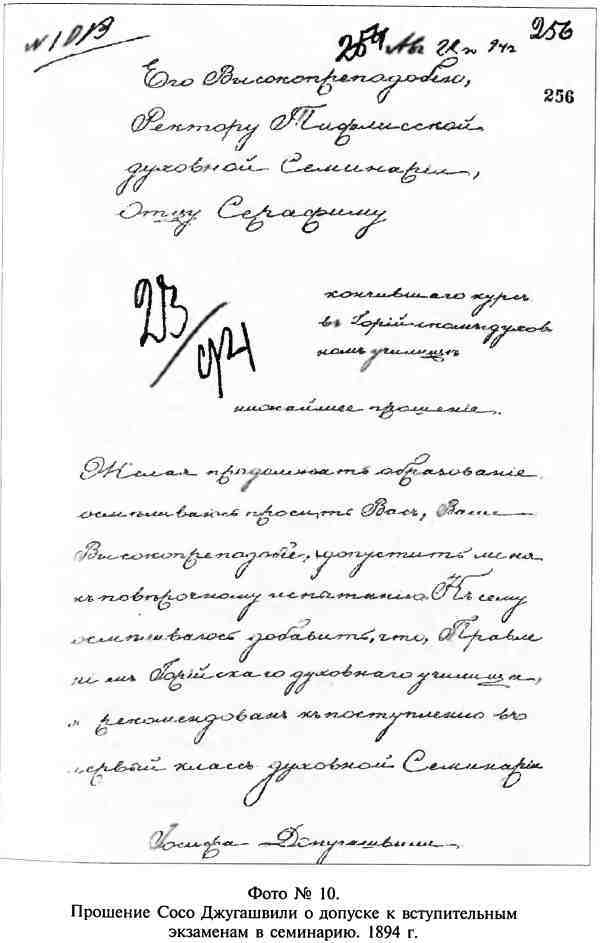 N 1013
254 Авг 22 дн 94 г
256
256
Его Высокопреподобію,
Ректору Тифлисской
духовной Семинаріи,
Отцу Серафиму
23/94
кончившаго курсъ
въ Горійскомъ духов
номъ училищѣ
нижайшее прошеніе.
Желая продолжать образованіе
осмѣливаюсь просить Васъ, Ваше
Высокопреподобіе, допустить меня
къ повѣрочному испытанію. Къ сему
осмѣливаюсь добавить, что, Правле
ніемъ Горійскаго духовнаго училища,
я рекомендованъ къ поступленію въ
первый классъ духовной Семинаріи
Іосифа Джугашвили.
Фото № 10.
Прошение Сосо Джугашвили о допуске к вступительным
экзаменам в семинарию. 1894 г.